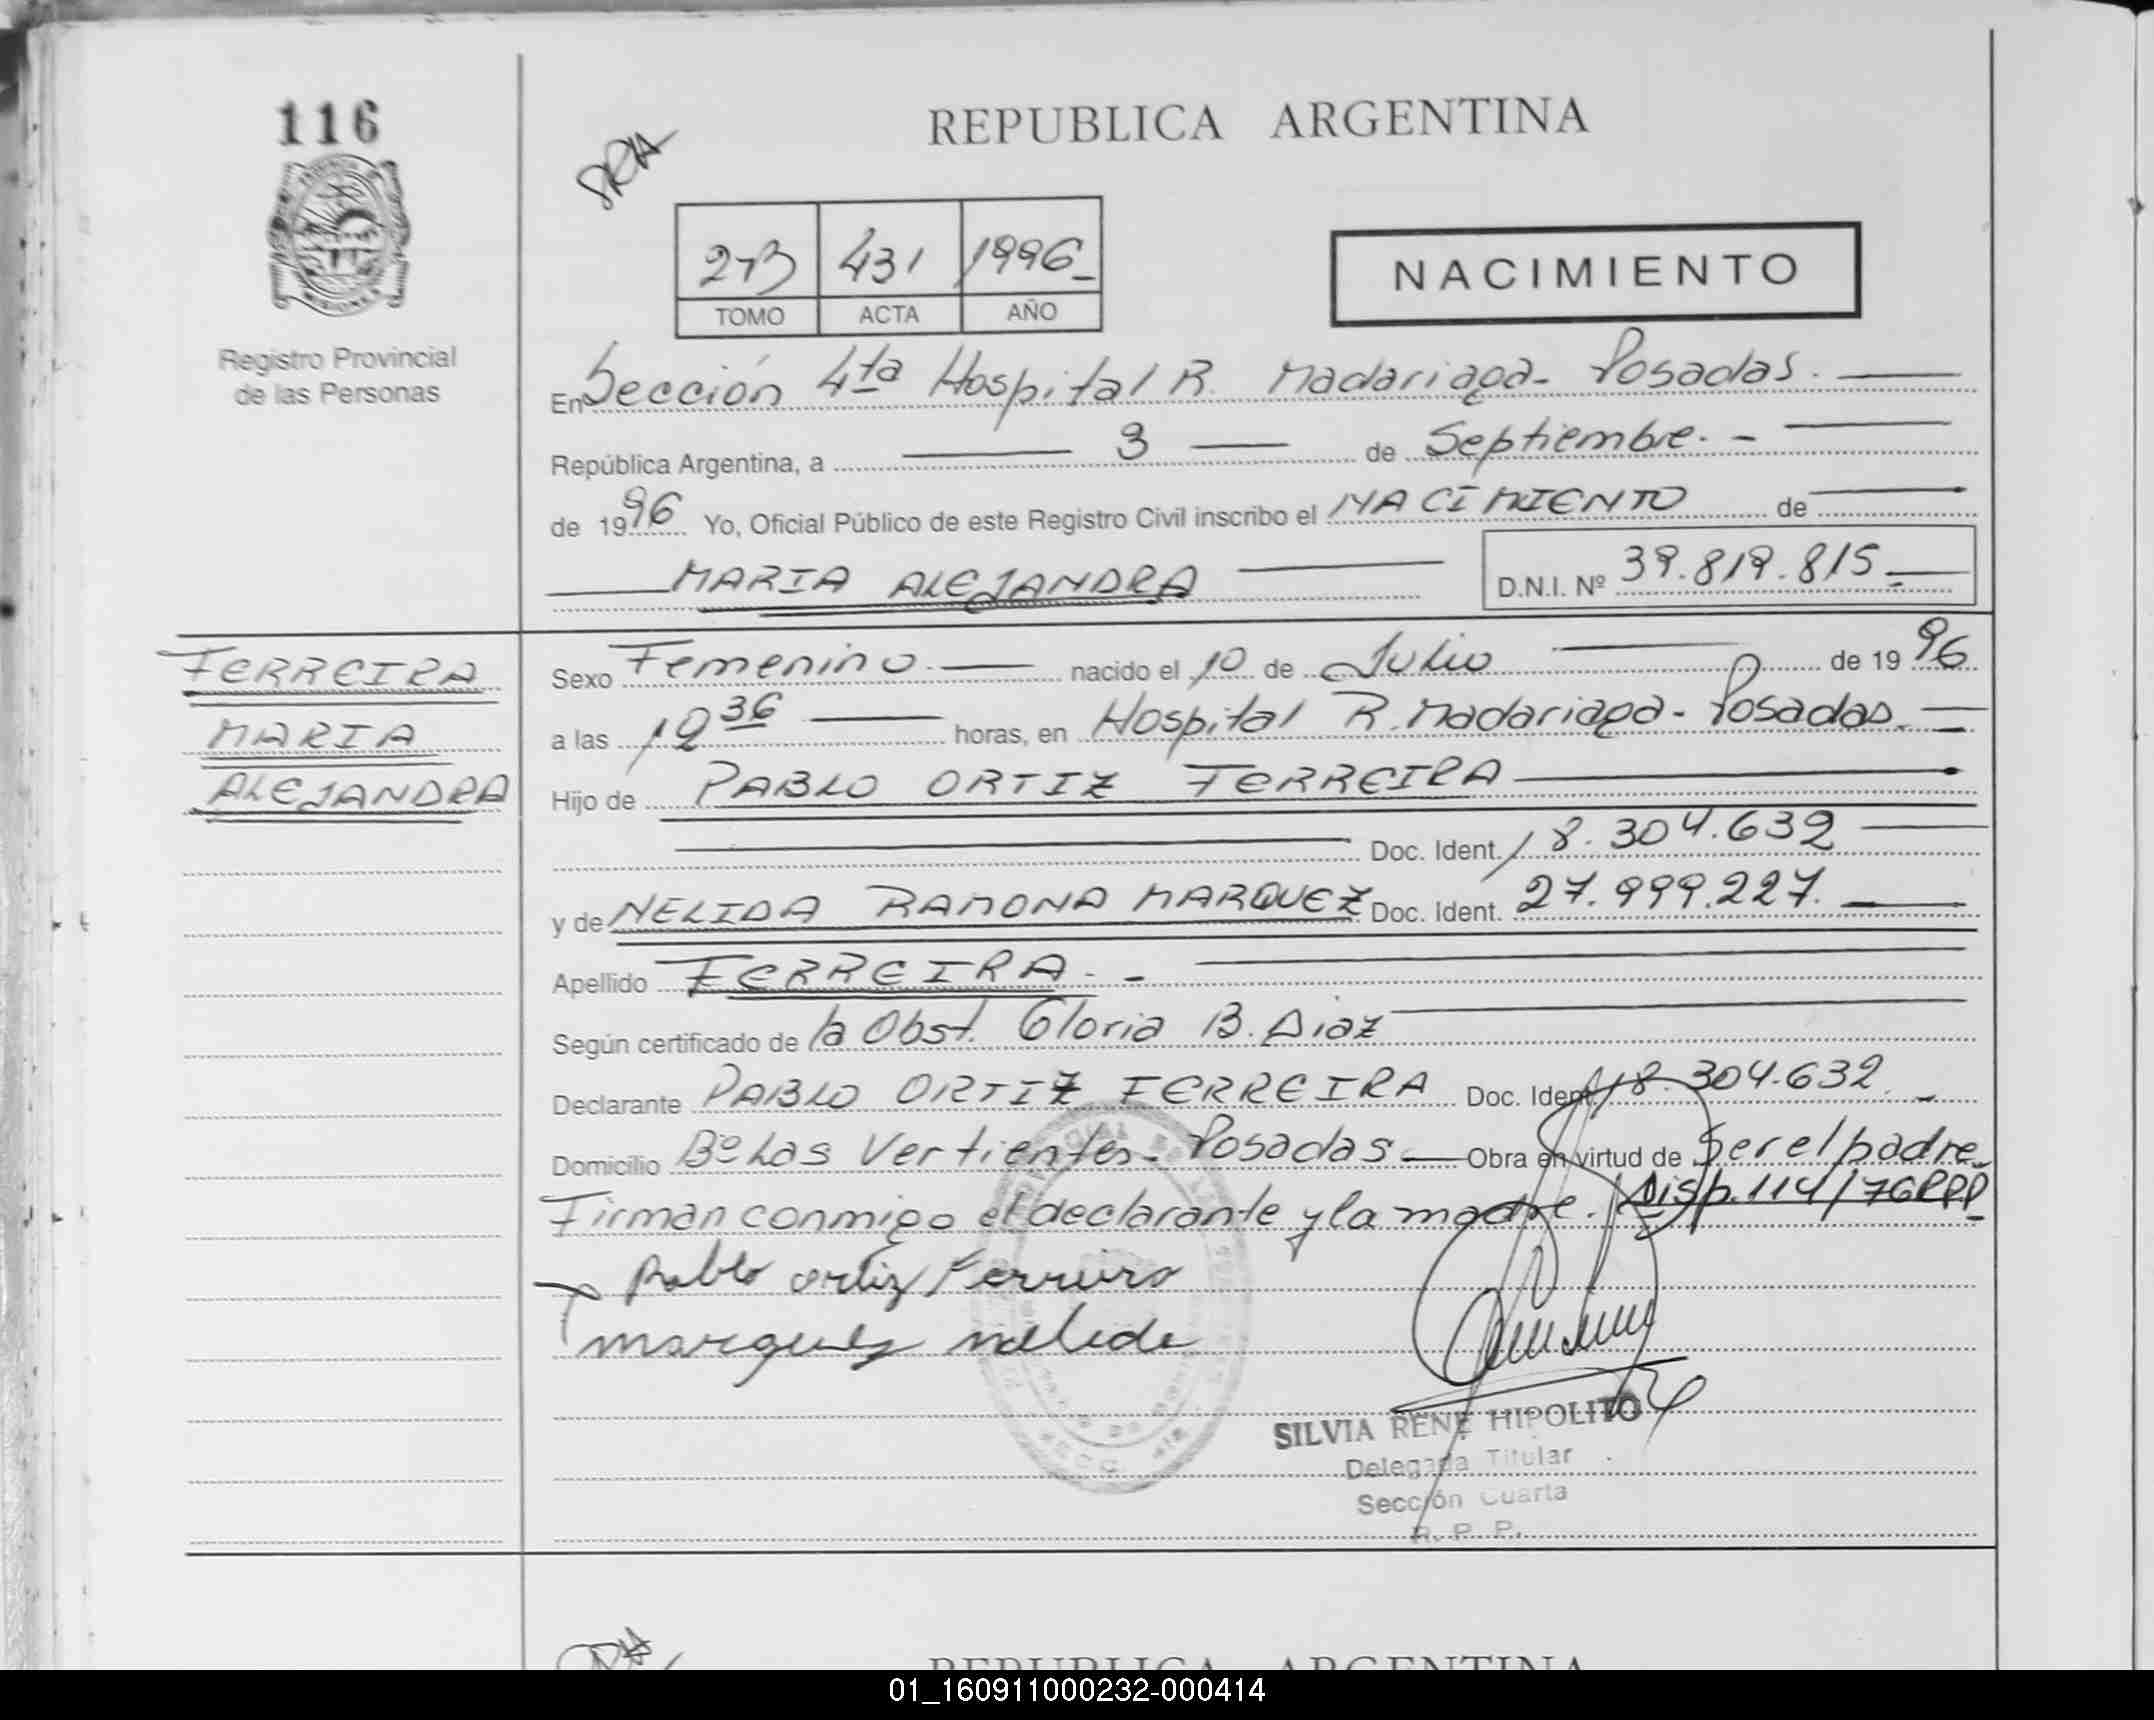 116
REPUBLICA ARGENTINA
273 431 1996
TOMO ACTA AÑO
NACIMIENTO
Registro Provincial
de las Personas
En Sección 4ta Hospital R. Madariaga - Posadas.
República Argentina, a 3 de Septiembre. -
de 1996 Yo, Oficial Público de este Registro Civil inscribo el NACIMIENTO de
MARIA ALEJANDRA D.N.I. Nº 39.819.815
FERREIRA
MARIA
ALEJANDRA
Sexo Femenino nacido el 10 de Julio de 1996
a las 12 36 horas, en Hospital R. Madariaga - Posadas.
Hijo de PABLO ORTIZ FERREIRA
Doc. Ident. 18.304.632
y de NELIDA RAMONA MARQUEZ Doc. Ident. 27.999.227.
Apellido FERREIRA. -
Según certificado de la Obst. Gloria B. Diaz
Declarante PABLO ORTIZ FERREIRA Doc. Ident. 18.304.632
Domicilio Bº Las Vertientes - Posadas. Obra en virtud de Ser el padre
Firman conmigo el declarante y la madre. Disp. 114/76 RPP
Pablo ortiz Ferreira
marquez nelida
SILVIA RENE HIPOLITO
Delegada Titular
Sección Cuarta
R. P. P.
REPUBLICA ARGENTINA
01_160911000232-000414